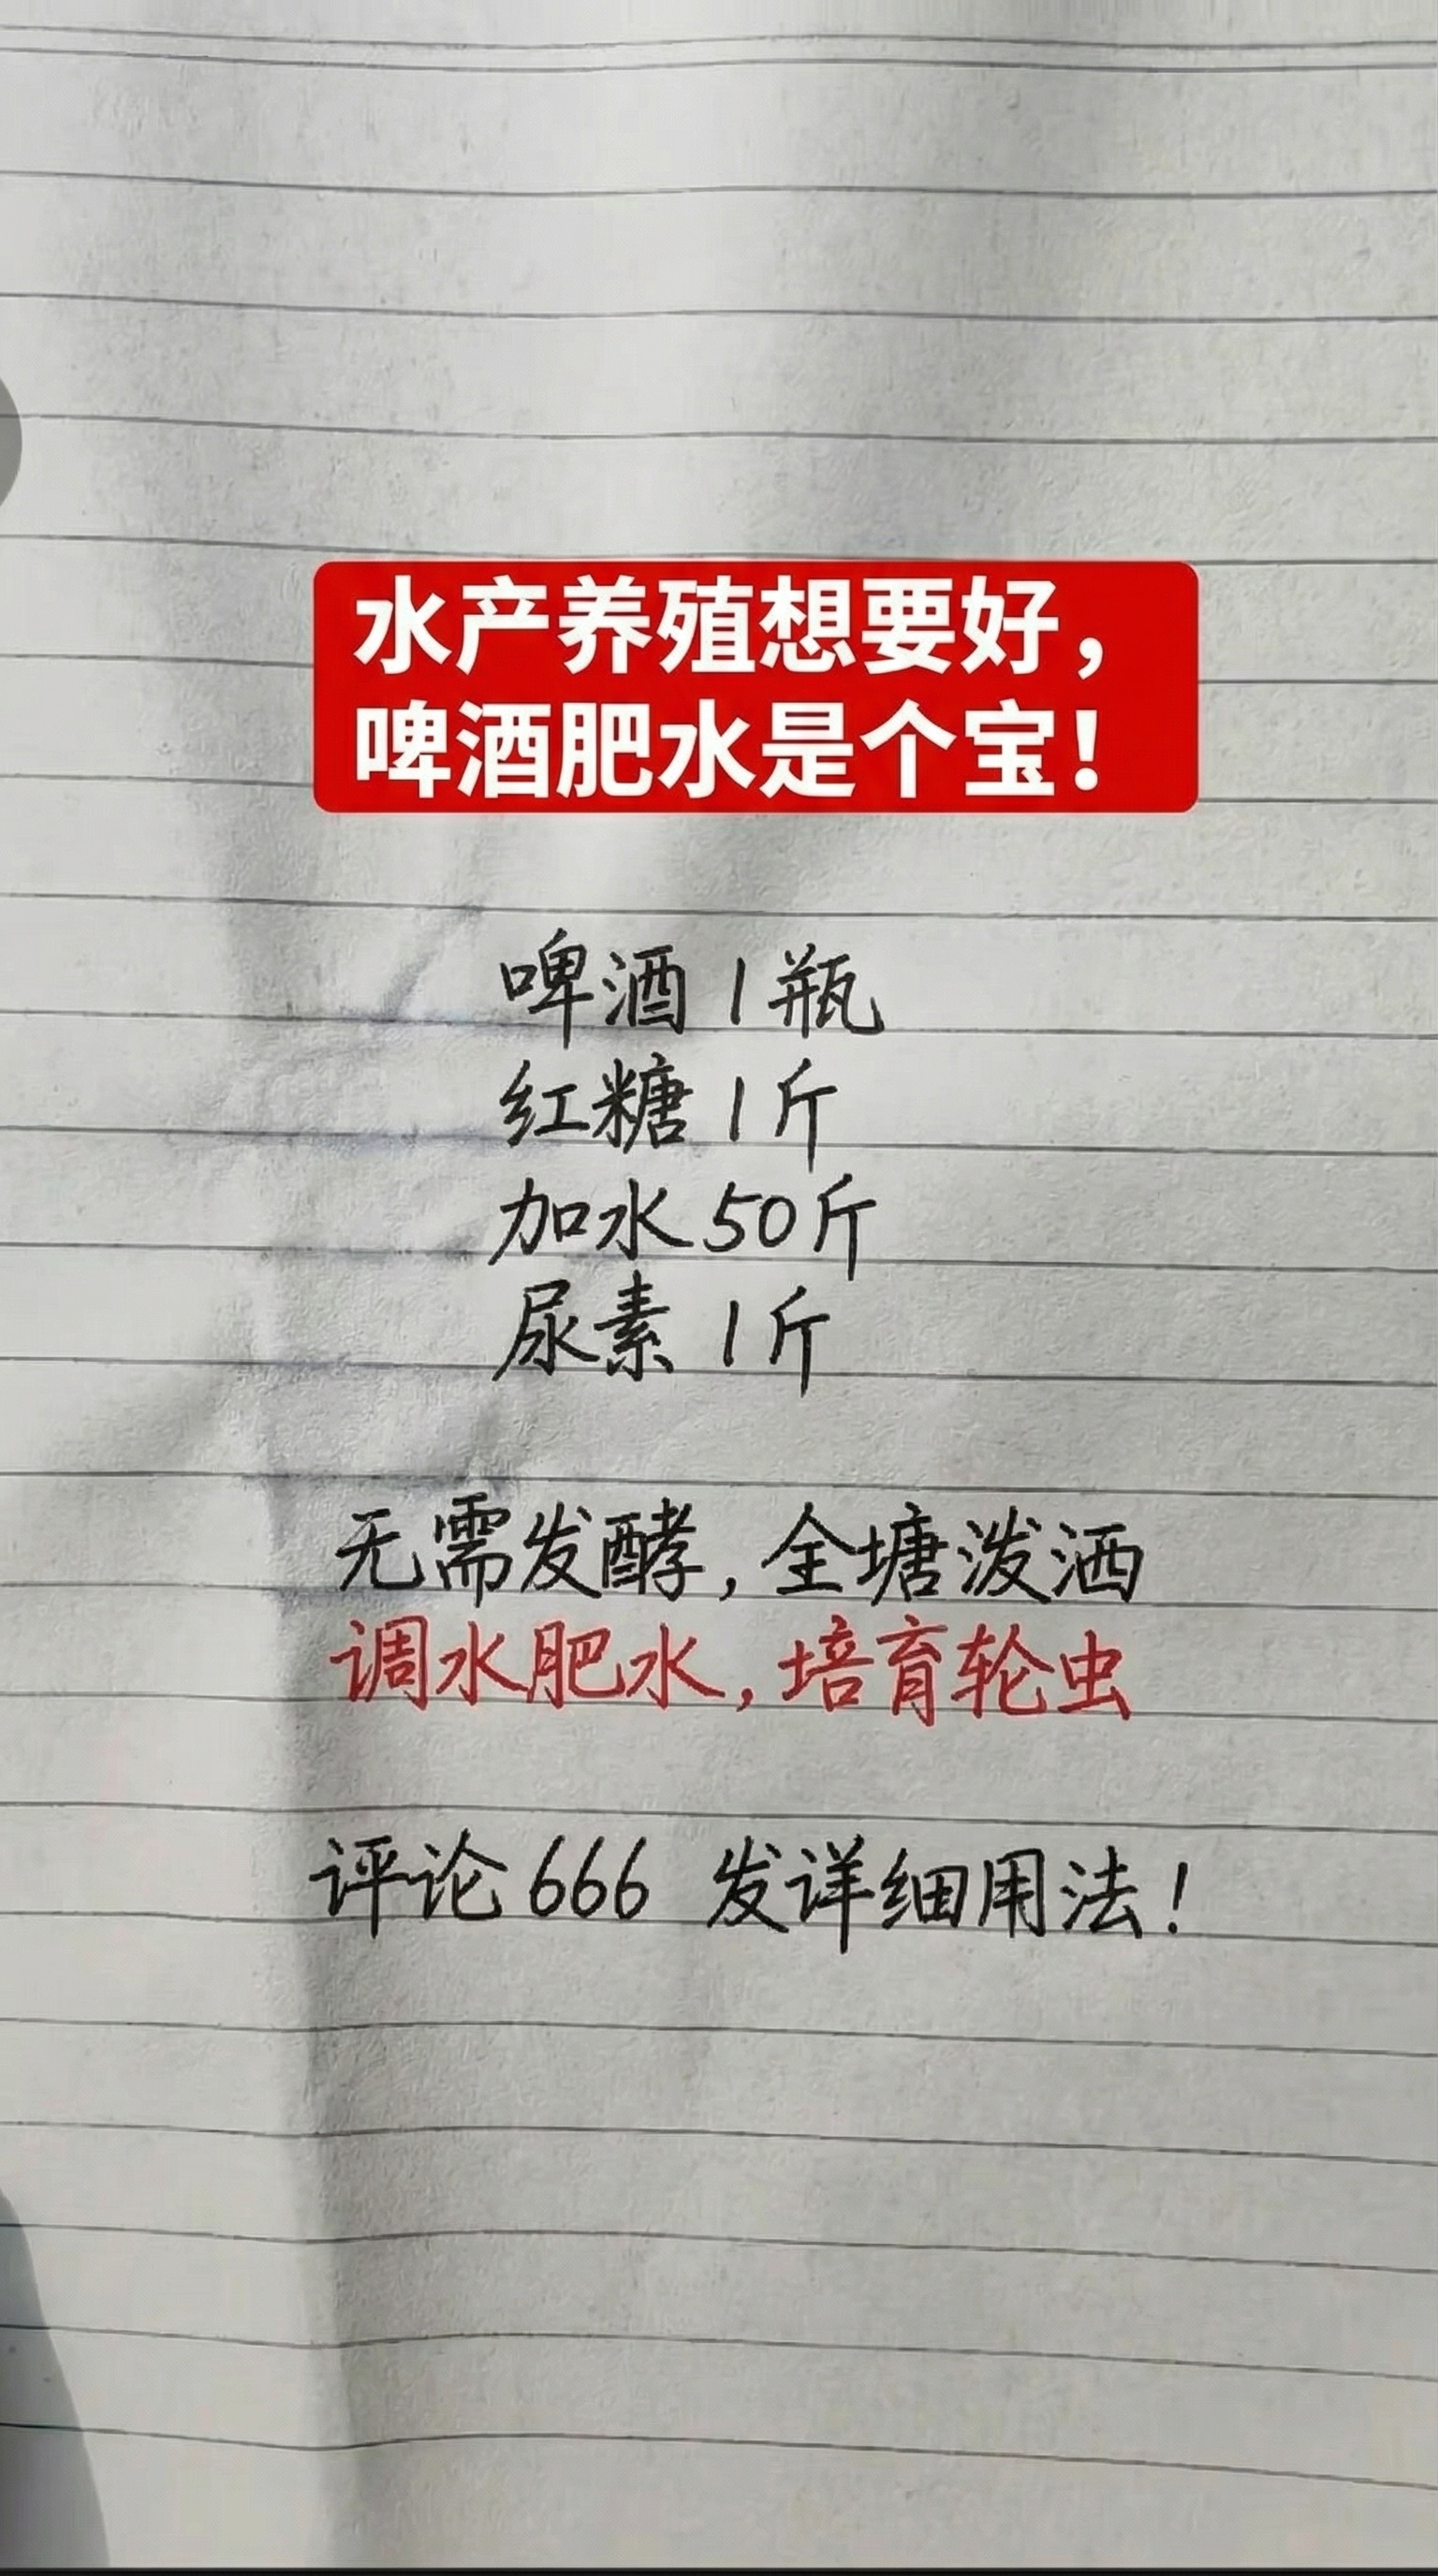 水产养殖想要好，
啤酒肥水是个宝！
啤酒1瓶
红糖1斤
加水50斤
尿素1斤
无需发酵，全塘泼洒
调水肥水，培育轮虫
评论666 发详细用法！